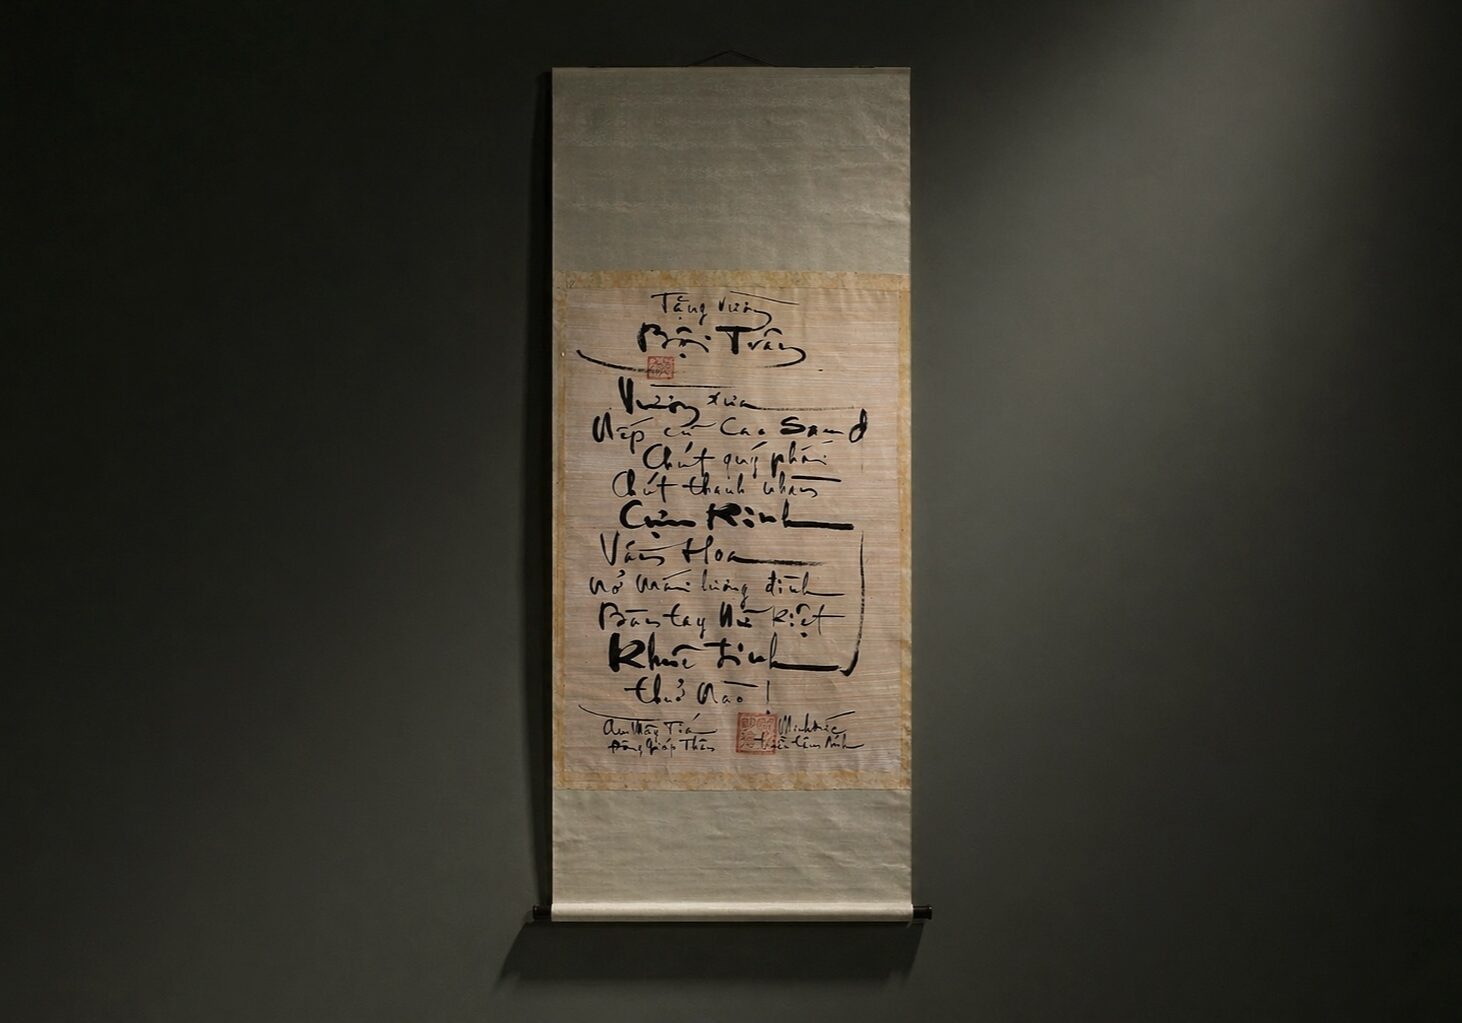 Tặng Vườn
Bội Trân
Vườn xưa
Nếp cũ Cao Sang
Chút quý phái
Chút thanh nhàn
Cựu Kinh
Vấn Hoa
nở mái hương đình
Bàn tay Nữ Kiệt
Khuê tình
thuở nào !
Am Mây Tía
Đông Giáp Thân
Minh Đức
Triều Tâm Ảnh